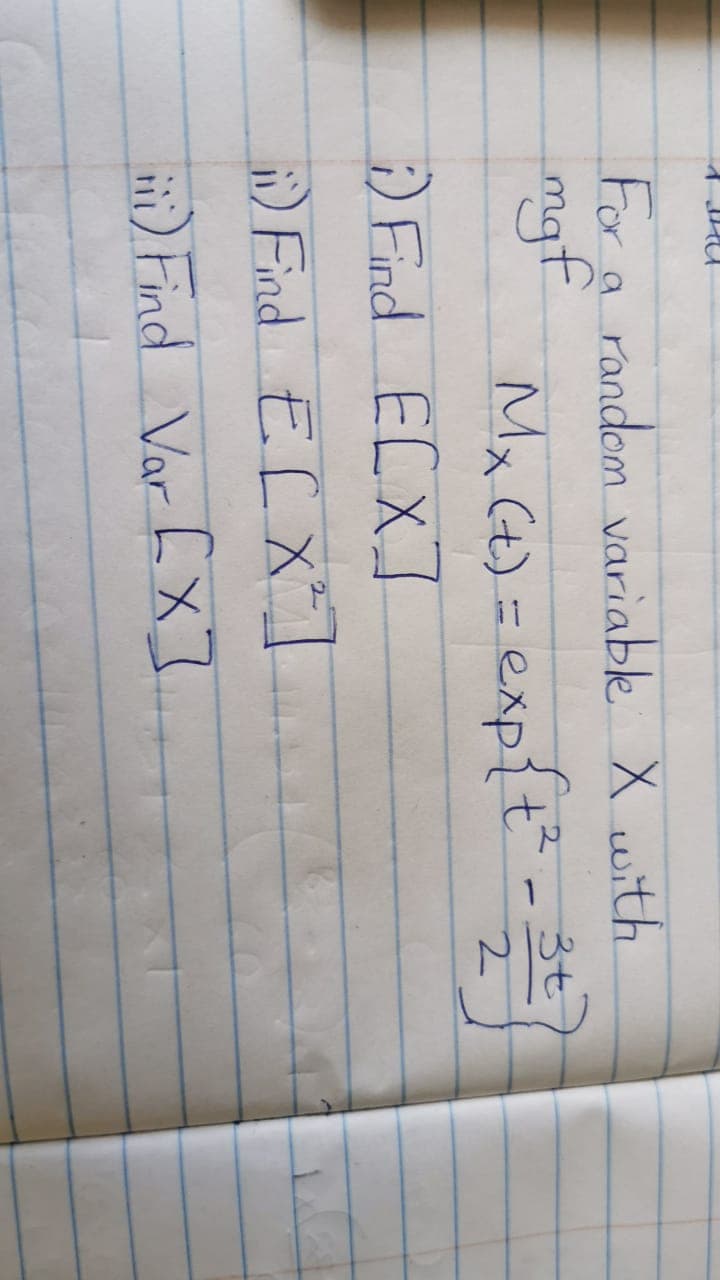 For a random variable X with
mgf
Mx (t) = exp{t² - 3t/2}
i) Find E[X]
ii) Find E[X²]
iii) Find Var[X]